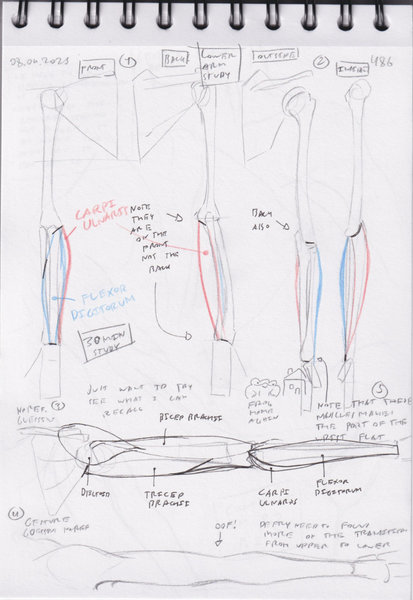 08.04.2021
FRONT
1
BACK
LOWER
ARM
STUDY
OUTSIDE
2
INSIDE
486
CARPI
ULNARIS
NOTE
THEY
ARE
ON THE
FRONT
NOT THE
BACK
BACK
ALSO
FLEXOR
DIGITORUM
30 MIN
STUDY
JUST WANT TO TRY
SEE WHAT I CAN
RECALL
FROG
HOME
AGAIN
5
NOTE THAT THESE
MUSCLES MAKES
THE PART OF THE
WRIST FLAT
3
BICEP BRACHII
DELTOID
TRICEP
BRACHII
CARPI
ULNARIS
FLEXOR
DIGITORUM
4
GESTURE
OOF!
DEFFLY NEED TO FOCUS
MORE ON THE TRANSITION
FROM UPPER TO LOWER